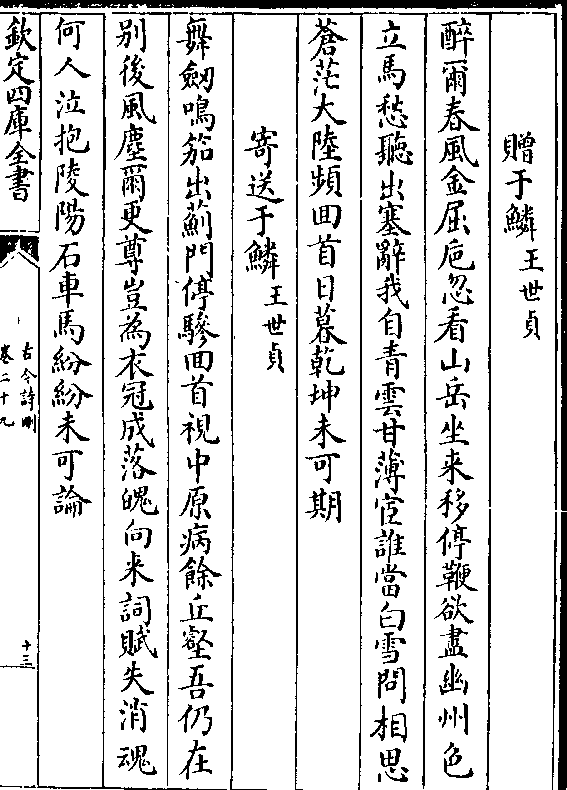 贈于鱗王世貞
醉爾春風金屈巵忽看山岳坐来移停鞭欲盡幽州色
立馬愁聽出塞辭我自青雲甘薄宦誰當白雪問相思
蒼茫大陸頻囬首日暮乾坤未可期
寄送于鱗王世貞
舞劒鳴笳出薊門停驂囬首視中原病餘丘壑吾仍在
别後風塵爾更尊豈為衣冠成落魄向来詞賦失消魂
何人泣抱陵陽石車馬紛紛未可論
欽定四庫全書
古今詩刪
卷二十九
十三